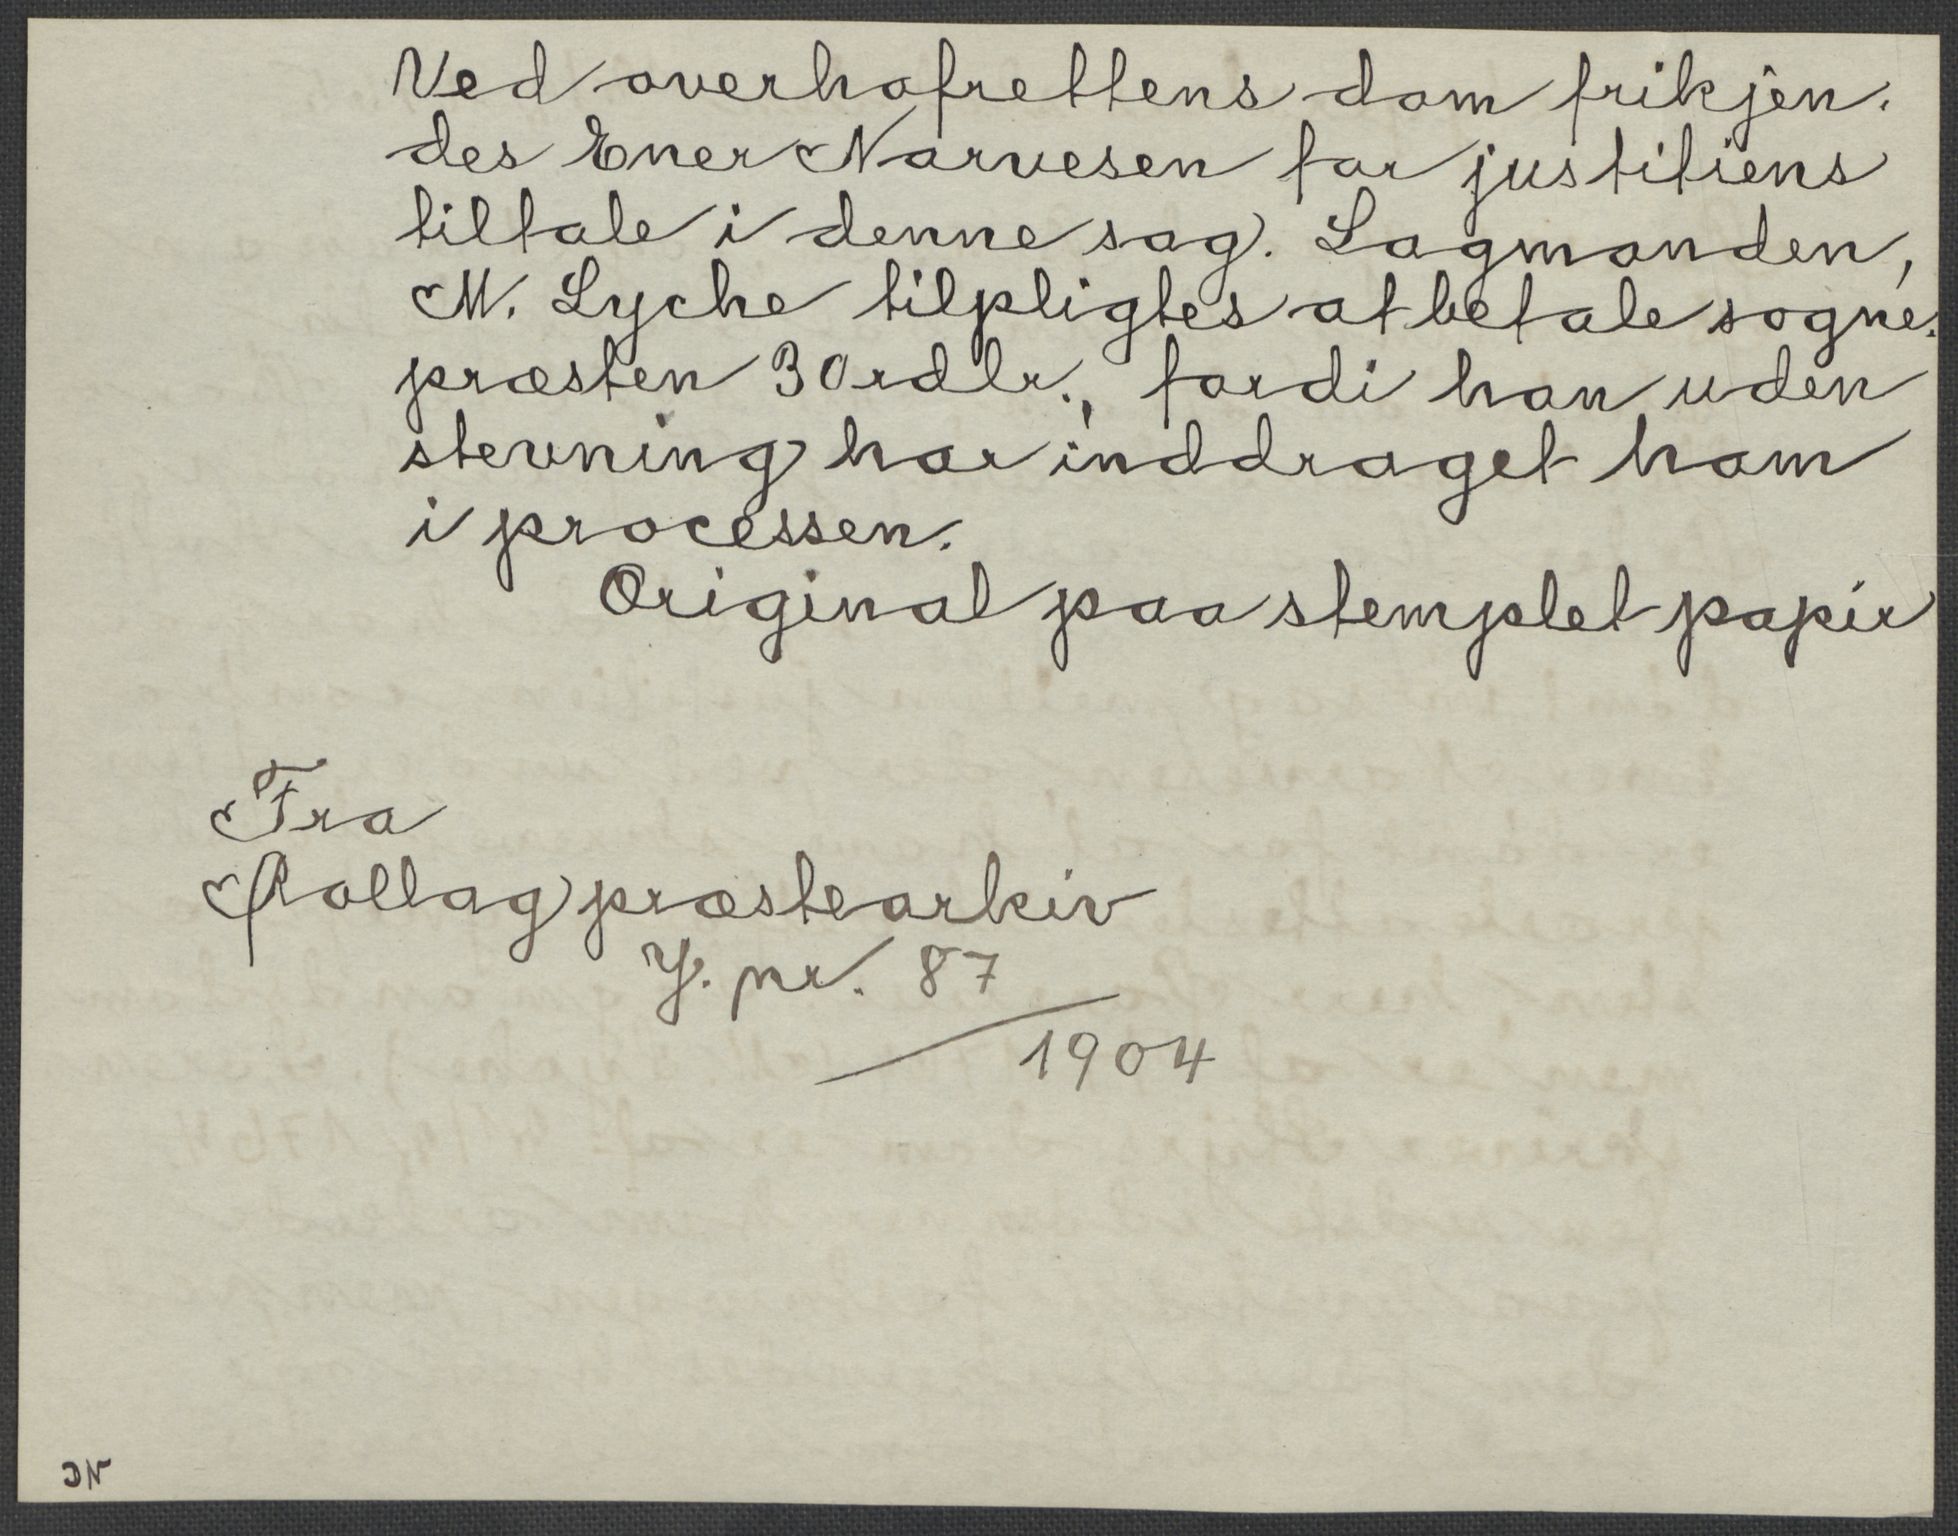 Ved overhofrettens dom frikjen-
des Ener Narvesen for justitiens
tiltale i denne sag. Lagmanden,
M. Lyche tilpligtes at betale sogne-
præsten 30 rdlr., fordi han uden
stevning har inddraget ham
i processen.
Original paa stemplet papir
Fra
Rollag præstearkiv
J. nr. 87
1904
DN